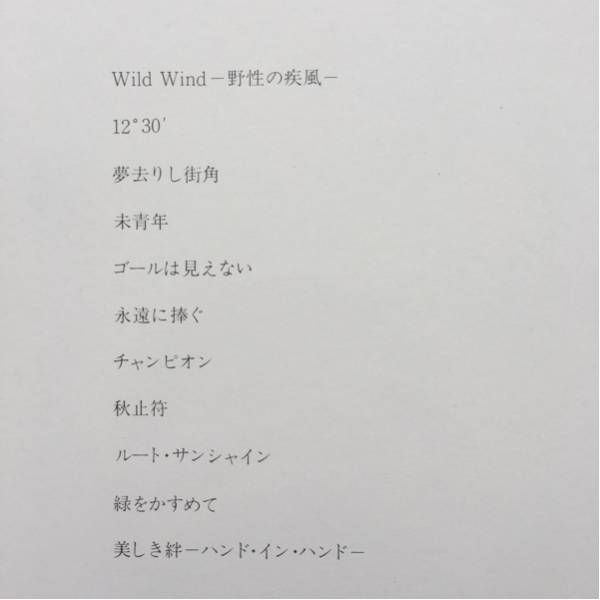 Wild Wind－野性の疾風－
12°30′
夢去りし街角
未青年
ゴールは見えない
永遠に捧ぐ
チャンピオン
秋止符
ルート・サンシャイン
緑をかすめて
美しき絆－ハンド・イン・ハンド－